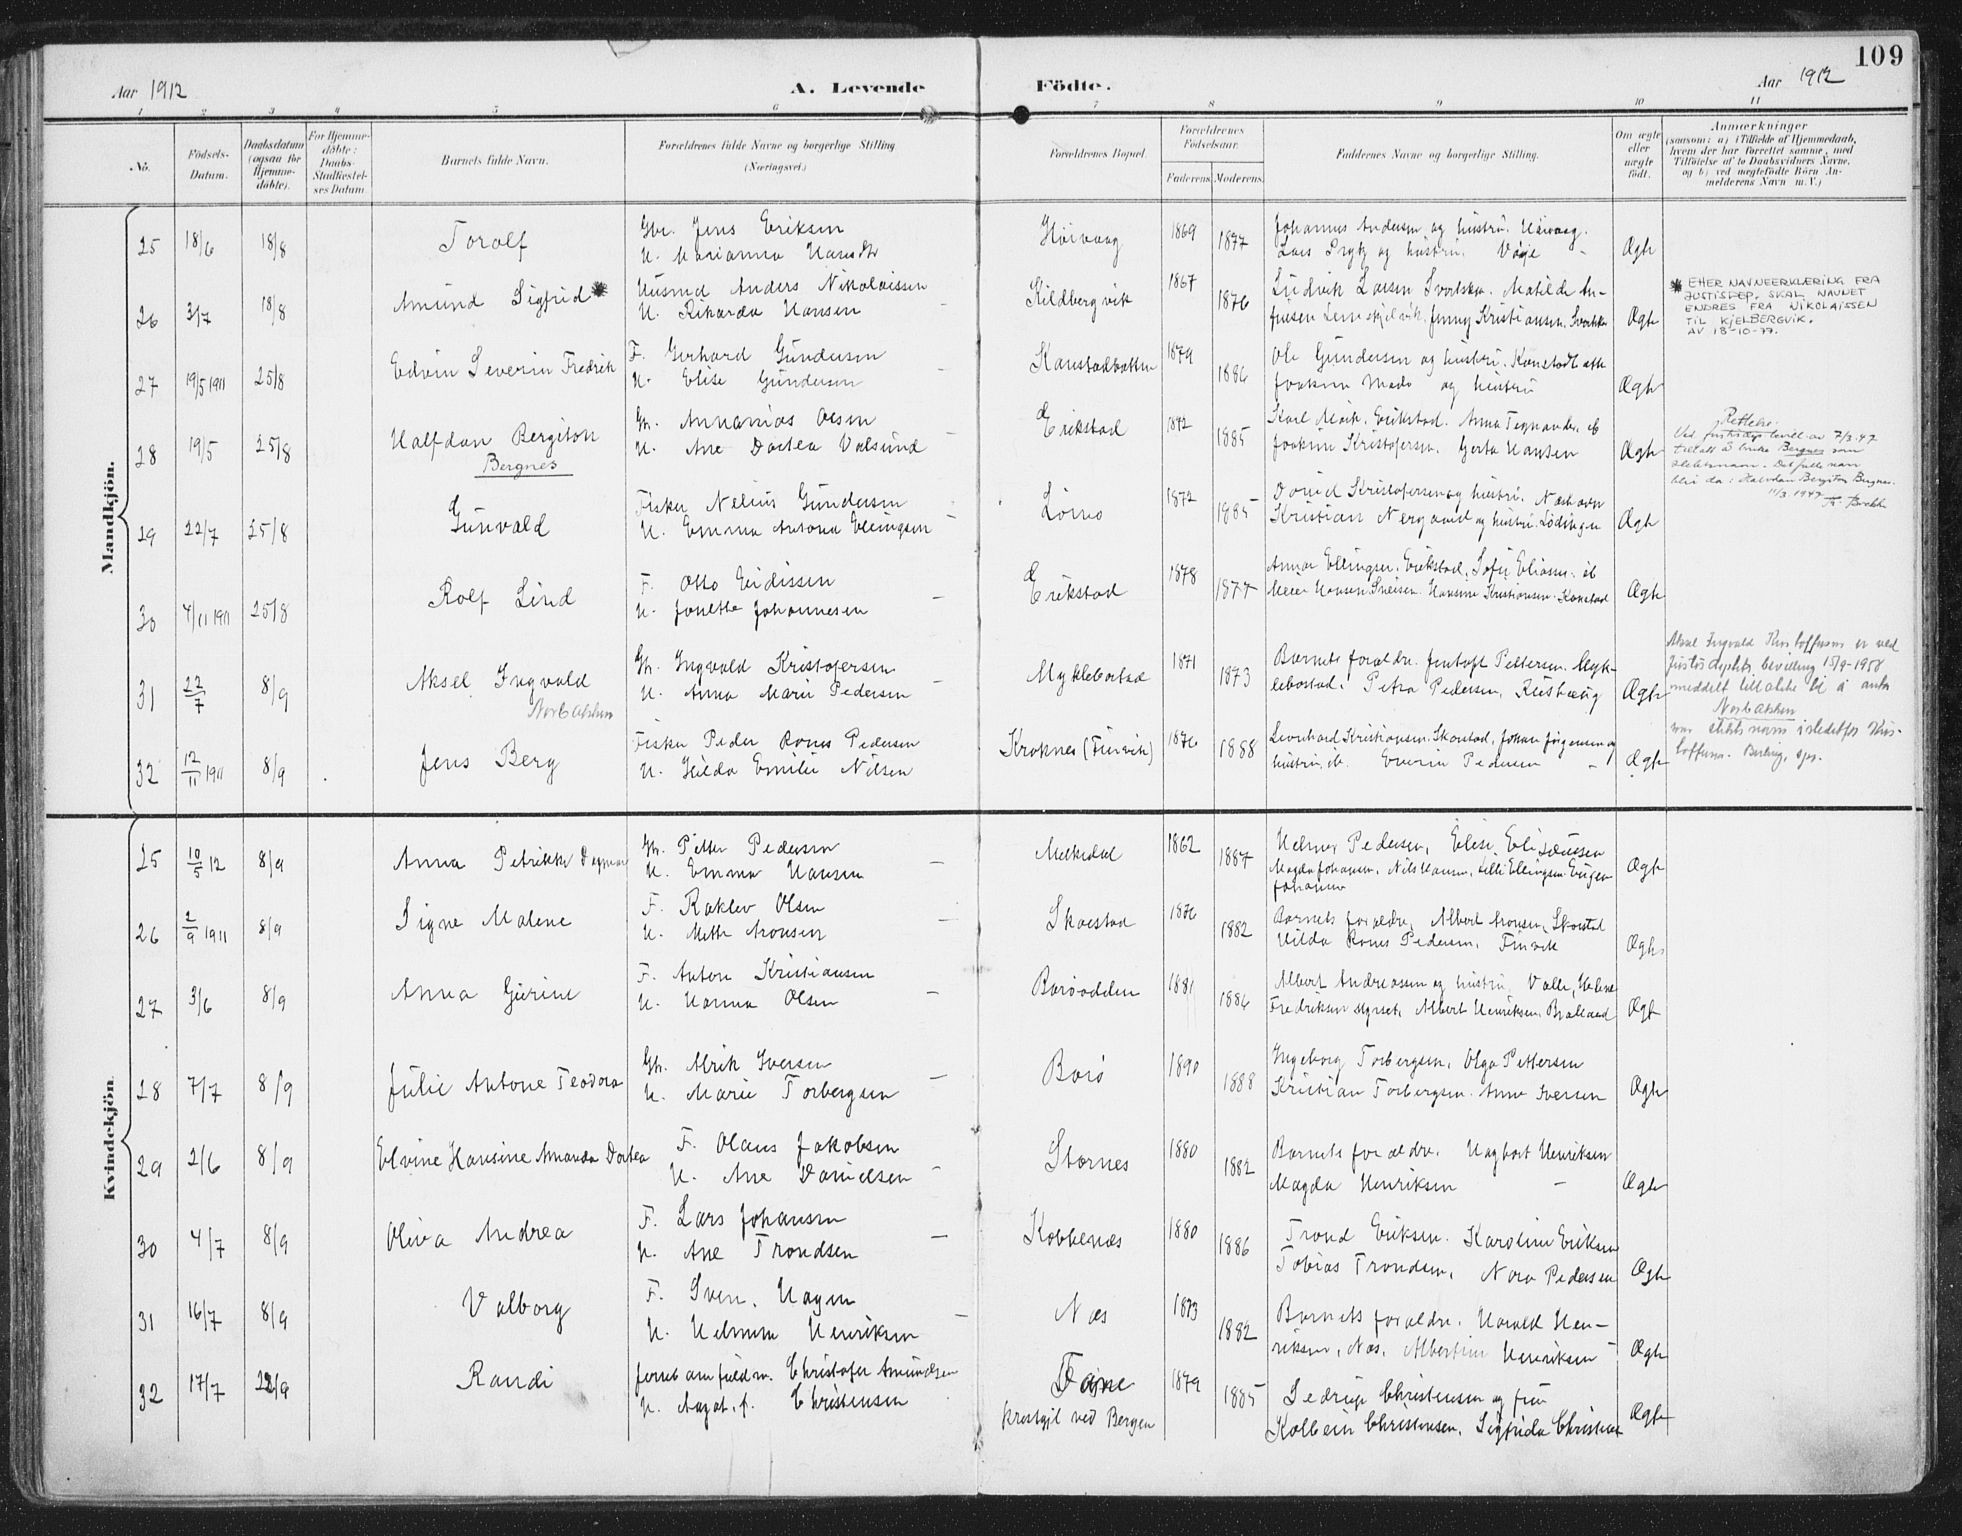 109
Aar 1912 A. Levende Födte. Aar 1912
1 2 3 4 5 6 7 8 9 10 11
No.
Födsels-Datum.
Daabsdatum (ogsaa for Hjemmedöbte).
For Hjemmedöbte: Daabs-Stadfestelses Datum
Barnets fulde Navn.
Forældrenes fulde Navne og borgerlige Stilling (Næringsvei.)
Forældrenes Bopæl.
Forældrenes Födselsaar. Faderens Moderens
Faddernes Navne og borgerlige Stilling.
Om ægte eller uægte födt.
Anmærkninger
(saasom: a) i Tilfælde af Hjemmedaab,
hvem der har forrettet samme, med
Tilföielse af to Daabsvidners Navne,
og b) ved uægtefödte Börn Anmelderens Navn m. V.)
Mandkjön.
25 18/6 18/8 Torolf Gbr. Jens Eriksen Høivaag 1869 Johannes Andersen og hustru.
H. Marianna 1877 og hustru. Ægte
26 3/7 18/8 Amund Sigfrid * Husmd Anders Nikolaissen Kildbergvik 1867 Ludvik Larsen Matilde
H. Rikarda Hansen 1876 Jenny Kristiansen. Ægte
* ETTER NAVNEERKLÆRING FRA
JUSTISDEP. SKAL NAVNET
ENDRES FRA NIKOLAISSEN
TIL KJELBERGVIK.
AV 18-10-77.
27 19/5 1911 25/8 Edvin Severin Fredrik F. Gerhard Gundersen Kanstadbotten 1879 Ole Gundersen og hustru.
H. Elise Gundersen 1886 Joakim og hustru Ægte
28 19/5 25/8 Halfdan Bergiton Gbr. Annanias Olsen Erikstad Karl Erikstad. Anna
Bergnes H. Ane Dortea Valsund 1885 Joakim Kristofersen. Gerta Hansen Ægte
Rettelse:
Ved justisdep bevill av 7/3.47
tillatt å bruke Bergnes som
slektsnavn. Det fulle navn
blir da: Halvdan Bergiton Bergnes.
11/3 1947
29 22/7 25/8 Gunvald Fisker Nelius Gundersen 1872 David Kristofersen og hustru.
H. Emma Antona Ellingsen 1885 Kristian Nergaard og hustru Lödingen Ægte
30 4/11 1911 25/8 Rolf Lind F. Otto Eidissen Erikstad 1878 Ellingsen. Erikstad. Sofie Eliassen. ib
H. Jonetta Johannesen 1877 Meier Hansen Hansine Kristiansen. Kanstad Ægte
31 22/7 8/9 Aksel Ingvald Gbr. Ingvald Kristofersen Myklebostad 1871 Barnets forældre. Pettersen. Myk-
Norbakken H. Anna Marie Pedersen 1873 lebostad. Petra Pedersen, Ægte
Aksel Ingvald Kristoffersen er ved
justisdeptets bevilling 15/9-1958
meddelt tillatelse til å anta
Norbakken
som slektsnavn istedetfor Kris-
toffersen.
32 12/11 1911 8/9 Jens Berg Fisker Peder Rones Pedersen Kroknes (Finvik) 1876 Leonhard Kristiansen. Skarstad, Johan Jørgensen og
H. Hilda Emilie Nilsen 1888 hustru, ib. Pedersen Ægte
Kvindekjön.
25 10/5 12 8/9 Anna Petrikke Dagmar Gbr. Pitter Pedersen Melkedal 1862 Helmer Pedersen, Elise
H. Emma Hansen 1887 Magda Johansen. Nils Hansen, Lilli Ellingsen Eugen Ægte
Johansen
26 2/9 1911 8/9 Signe Malene F. Raklev Olsen Skarstad 1876 Barnets forældre, Albert Aronsen, Skarstad
H. Mette Aronsen 1882 Hilda Rones Pedersen, Finvik Ægte
27 3/6 8/9 Anna Gurine F. Anton Kristiansen Barøodden 1881 Albert Andreassen og hustru, Valle,
H. Hanna Olsen 1886 Fredriksen Myrset, Albert Henriksen, Ægte
28 7/7 8/9 Julie Antone Teodora Gbr. Alrik Iversen Barø 1890 Ingeborg Torbergsen, Olga Pettersen
H. Marie Torbergsen 1888 Kristian Torbergsen. Anna Iversen Ægte
29 2/6 8/9 Elvine Hansine Amanda Dortea F. Olaus Jakobsen Stornes 1880 Barnets forældre. Hagbart Henriksen
H. Ane Danielsen 1882 Magda Henriksen Ægte
30 4/7 8/9 Oliva Andrea F. Lars Johansen Kobbenæs 1880 Trond Eriksen. Karoline Eriksen
H. Ane Trondsen 1886 Tobias Trondsen, Nora Pedersen Ægte
31 16/7 8/9 Valborg F. Sven. Hagen Næs 1873 Barnets forældre. Harald Hen-
H. Helmine Henriksen 1882 riksen, Næs. Albertine Henriksen Ægte
32 17/7 22/9 Randi Christofer Amundsen 1879 Christensen og frue
H. Christensen Kristgjl ved Bergen 1885 Kolbein Christensen, Sigfrida Ægte